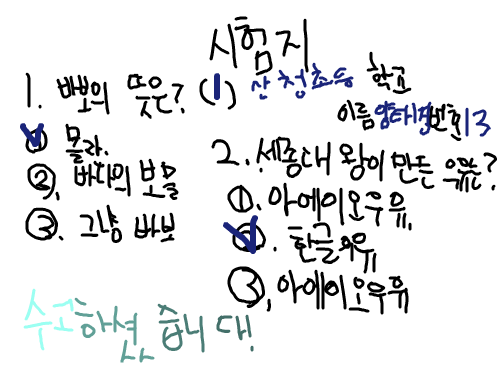 시험지
산청초등 학교
이름 양태정 번호 13
1. 바보의 뜻은? (1)
① 몰라.
②. 바다의 보물
③. 그냥 바보
2. 세종대왕이 만든 유는?
①. 아에이오우유.
②. 한글우유
③, 아에이오우유
수고하셨습니다!